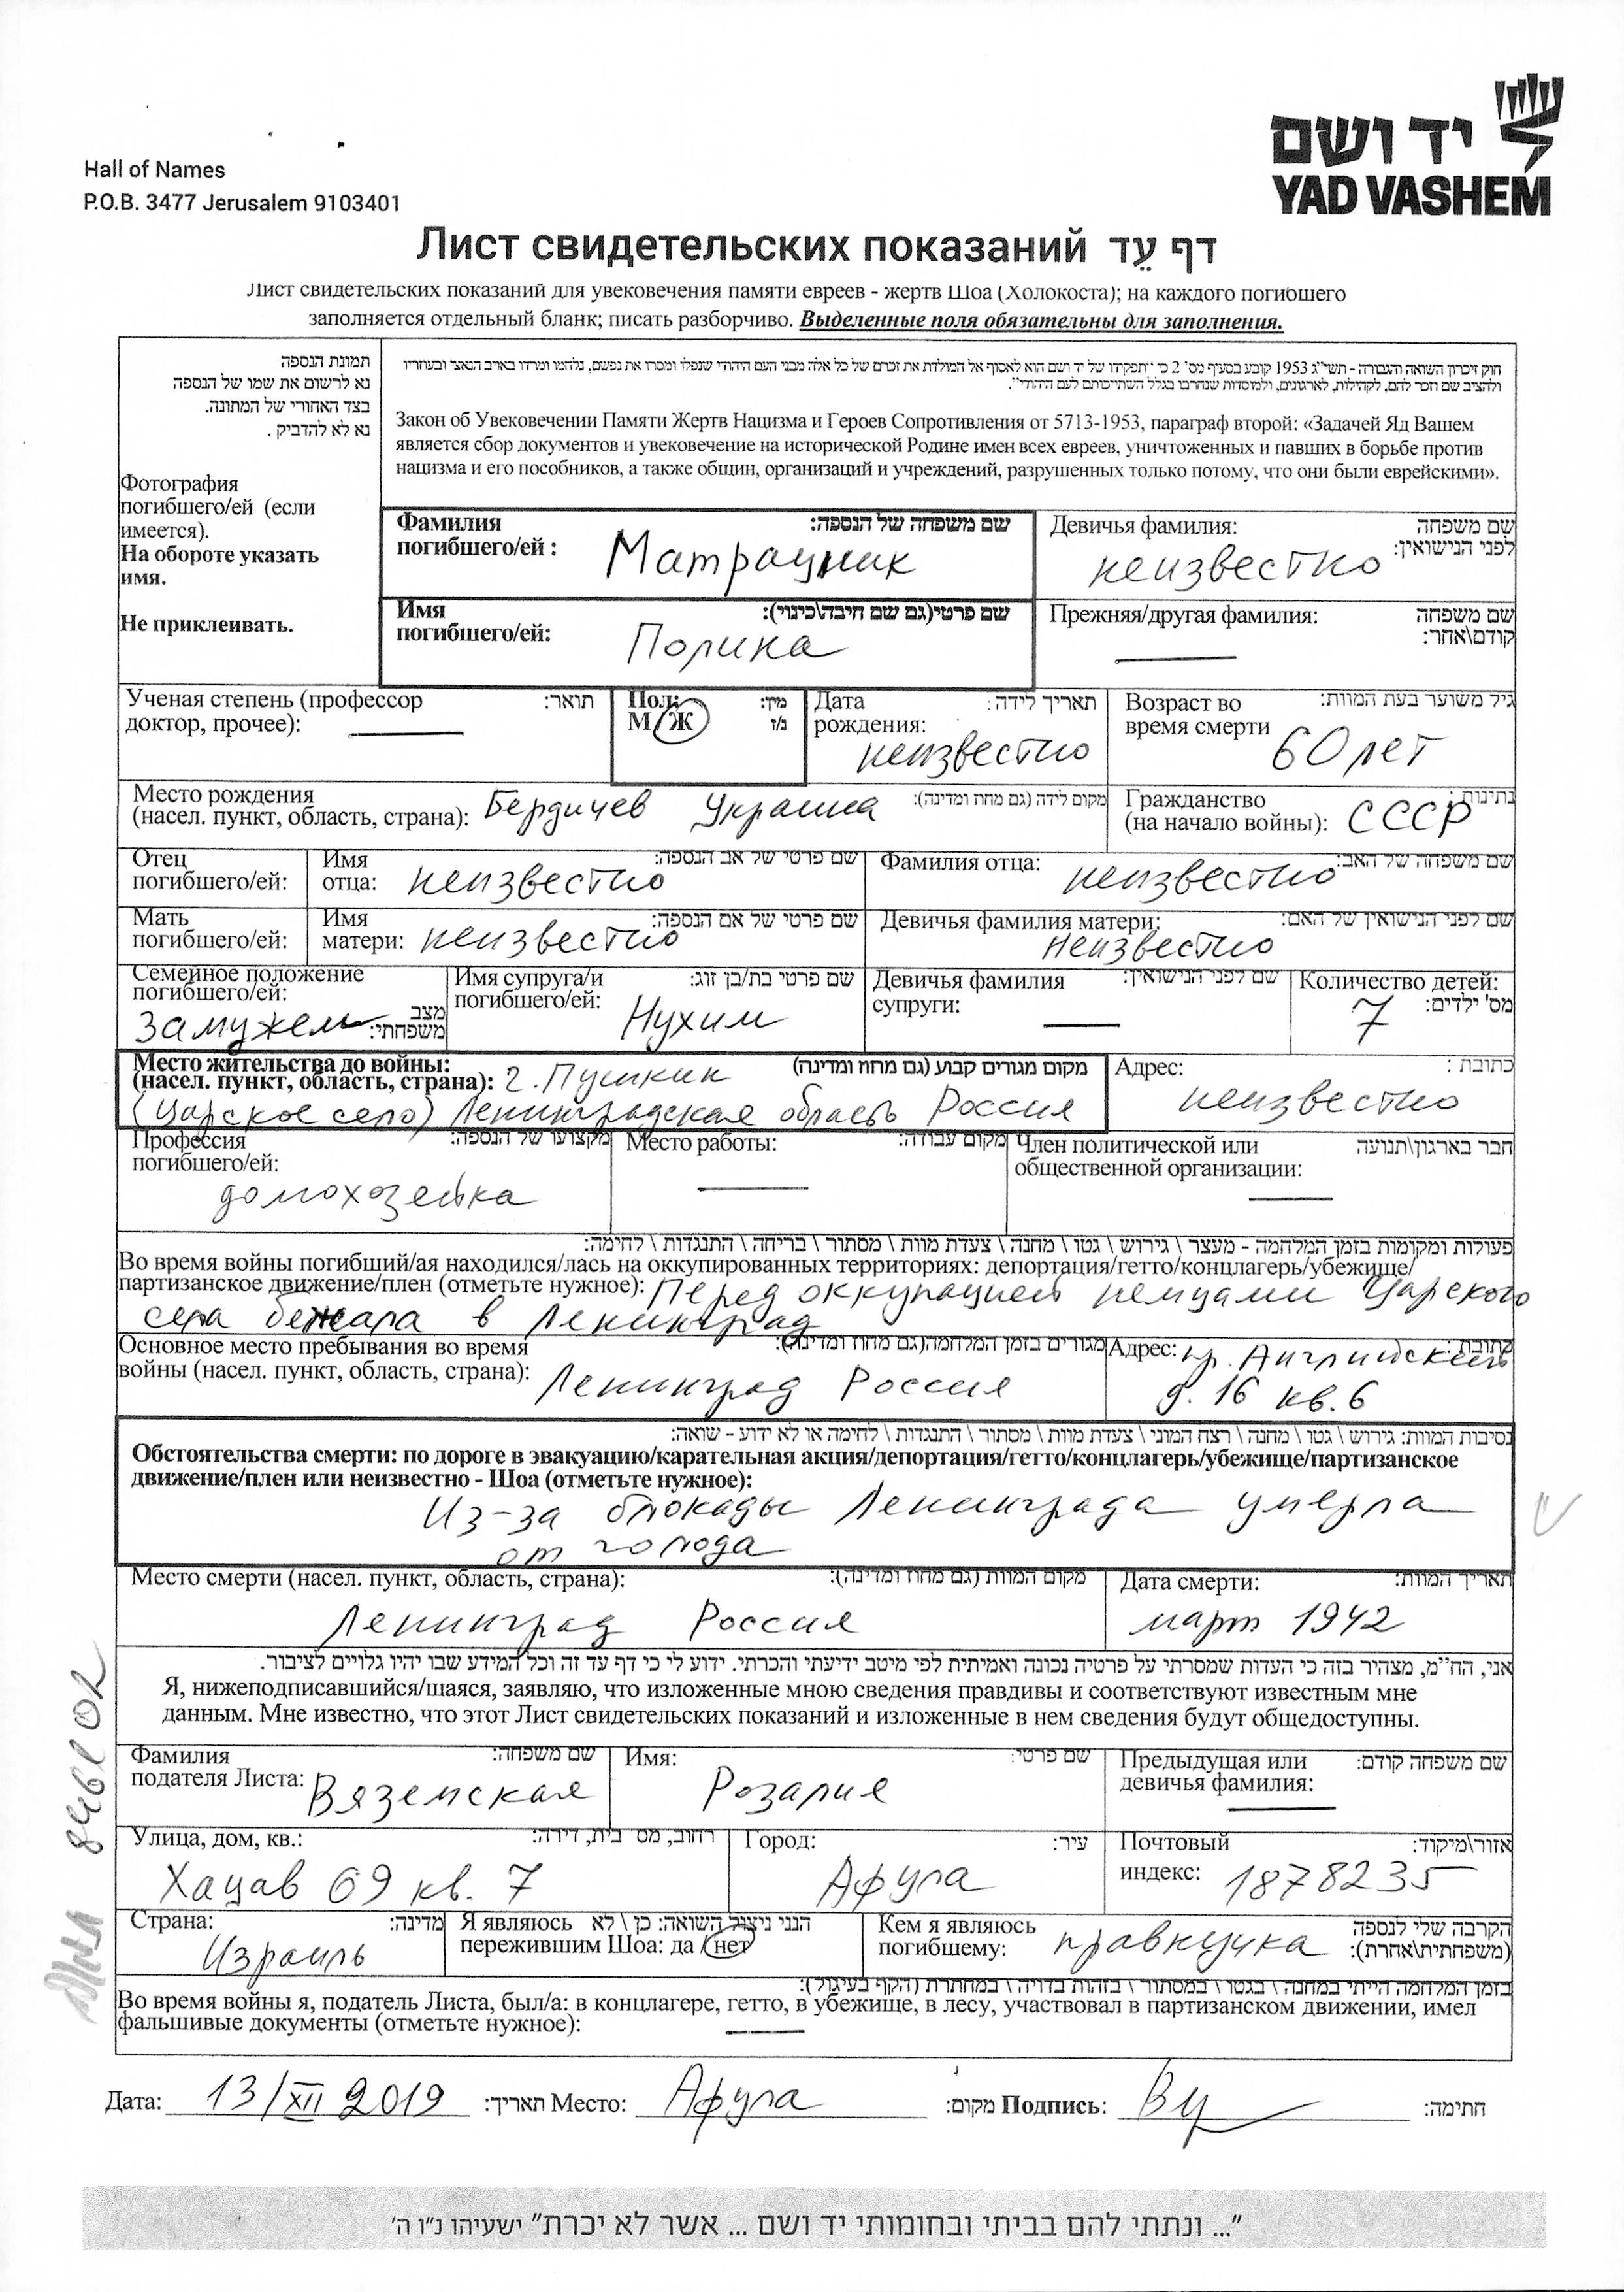 יד ושם
YAD VASHEM
Hall of Names
P.O.B. 3477 Jerusalem 9103401
Лист свидетельских показаний דף עֵד
Лист свидетельских показаний для увековечения памяти евреев - жертв Шоа (Холокоста); на каждого погибшего
заполняется отдельный бланк; писать разборчиво. Выделенные поля обязательны для заполнения.
תמונת הנספה
נא לרשום את שמו של הנספה
בצד האחורי של המתונה.
נא לא להדביק .
Фотография
погибшего/ей (если
имеется).
На обороте указать
имя.
Не приклеивать.
חוק זיכרון השואה והגבורה - תשי"ג 1953 קובע בסעיף מס' 2 כי "תפקידו של יד ושם הוא לאסוף אל המולדת את זכרם של כל אלה מבני העם היהודי שנפלו ומסרו את נפשם, נלחמו ומרדו באויב הנאצי ובעוזריו
ולהציב שם וזכר להם, לקהילות, לארגונים, ולמוסדות שנחרבו בגלל השתייכותם לעם היהודי".
Закон об Увековечении Памяти Жертв Нацизма и Героев Сопротивления от 5713-1953, параграф второй: «Задачей Яд Вашем
является сбор документов и увековечение на исторической Родине имен всех евреев, уничтоженных и павших в борьбе против
нацизма и его пособников, а также общин, организаций и учреждений, разрушенных только потому, что они были еврейскими».
Фамилия שם משפחה של הנספה:
погибшего/ей : Матрацник
Девичья фамилия: שם משפחה
לפני הנישואין:
неизвестно
Имя שם פרטי(גם שם חיבה\כינוי):
погибшего/ей: Полина
Прежняя/другая фамилия: שם משפחה
קודם\אחר:
—
Ученая степень (профессор תואר:
доктор, прочее): —
Пол: מין:
М/Ж נ/ז
Дата תאריך לידה:
рождения:
неизвестно
Возраст во גיל משוער בעת המוות:
время смерти 60 лет
Место рождения
(насел. пункт, область, страна): Бердичев Украина מקום לידה (גם מחוז ומדינה):
Гражданство נתינות:
(на начало войны): СССР
Отец
погибшего/ей:
Имя שם פרטי של אב הנספה:
отца: неизвестно
Фамилия отца: שם משפחה של האב:
неизвестно
Мать
погибшего/ей:
Имя שם פרטי של אם הנספה:
матери: неизвестно
Девичья фамилия матери: שם לפני הנישואין של האם:
неизвестно
Семейное положение
погибшего/ей: מצב
замужем משפחתי:
Имя супруга/и שם פרטי בת/בן זוג:
погибшего/ей: Нухим
Девичья фамилия שם לפני הנישואין:
супруги: —
Количество детей:
7 מס' ילדים:
Место жительства до войны: מקום מגורים קבוע (גם מחוז ומדינה)
(насел. пункт, область, страна): г. Пушкин
(Царское село) Ленинградская область Россия
Адрес: כתובת :
неизвестно
Профессия מקצועו של הנספה:
погибшего/ей:
домохозейка
Место работы: מקום עבודה:
—
Член политической или חבר בארגון\תנועה
общественной организации:
—
פעולות ומקומות בזמן המלחמה - מעצר \ גירוש \ גטו \ מחנה \ צעדת מוות \ מסתור \ בריחה \ התנגדות \ לחימה:
Во время войны погибший/ая находился/лась на оккупированных территориях: депортация/гетто/концлагерь/убежище/
партизанское движение/плен (отметьте нужное): Перед оккупацией немцами Царского
села бежала в Ленинград
Основное место пребывания во время מגורים בזמן המלחמה(גם מחוז ומדינה):
войны (насел. пункт, область, страна): Ленинград Россия
Адрес: пр. Английский כתובת :
д. 16 кв. 6
נסיבות המוות: גירוש \ גטו \ מחנה \ רצח המוני \ צעדת מוות \ מסתור \ התנגדות \ לחימה או לא ידוע - שואה:
Обстоятельства смерти: по дороге в эвакуацию/карательная акция/депортация/гетто/концлагерь/убежище/партизанское
движение/плен или неизвестно - Шоа (отметьте нужное):
Из-за блокады Ленинграда умерла
от голода
Место смерти (насел. пункт, область, страна): מקום המוות (גם מחוז ומדינה):
Ленинград Россия
Дата смерти: תאריך המוות:
март 1942
אני, הח"מ, מצהיר בזה כי העדות שמסרתי על פרטיה נכונה ואמיתית לפי מיטב ידיעתי והכרתי. ידוע לי כי דף עד זה וכל המידע שבו יהיו גלויים לציבור.
Я, нижеподписавшийся/шаяся, заявляю, что изложенные мною сведения правдивы и соответствуют известным мне
данным. Мне известно, что этот Лист свидетельских показаний и изложенные в нем сведения будут общедоступны.
Фамилия שם משפחה:
подателя Листа: Вяземская
Имя: שם פרטי:
Розалия
Предыдущая или שם משפחה קודם:
девичья фамилия:
—
Улица, дом, кв.: רחוב, מס' בית, דירה:
Хацав 69 кв. 7
Город: עיר:
Афула
Почтовый אזור\מיקוד:
индекс: 1878235
Страна: מדינה:
Израиль
Я являюсь הנני ניצול השואה: כן \ לא
пережившим Шоа: да /нет
Кем я являюсь הקרבה שלי לנספה
погибшему: правнучка (משפחתית\אחרת):
בזמן המלחמה הייתי במחנה \ בגטו \ במסתור \ בזהות בדויה \ במחתרת (הקף בעיגול):
Во время войны я, податель Листа, был/а: в концлагере, гетто, в убежище, в лесу, участвовал в партизанском движении, имел
фальшивые документы (отметьте нужное): —
Дата: 13/XII 2019 תאריך: Место: Афула מקום: Подпись: Вя חתימה:
"... ונתתי להם בביתי ובחומותי יד ושם ... אשר לא יכרת" ישעיהו נ"ו ה'